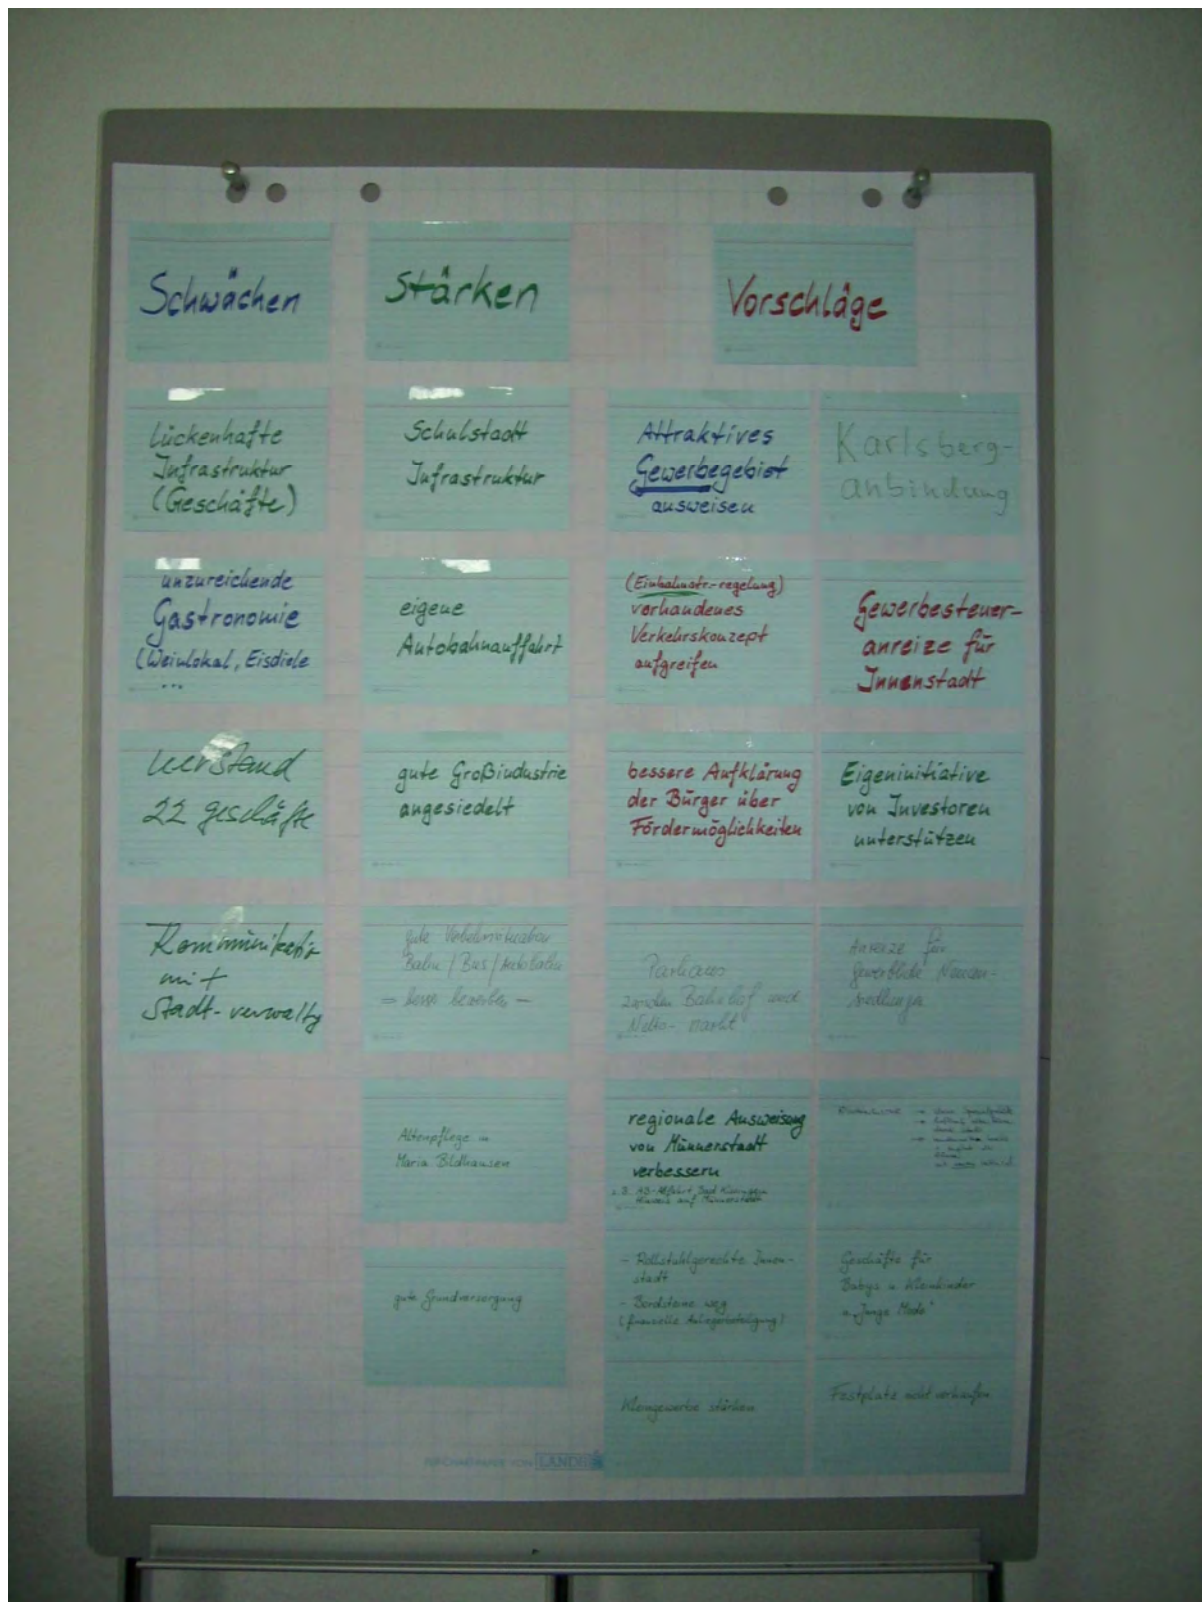 Schwächen
Stärken
Vorschläge
Lückenhafte
Infrastruktur
(Geschäfte)
unzureichende
Gastronomie
(Weinlokal, Eisdiele
...
Leerstand
22 geschäfte
mit
Stadt-verwaltg
Schulstadt
Infrastruktur
eigene
Autobahnauffahrt
gute Großindustrie
angesiedelt
gute
Bahn / Bus / Autobahn
Altenpflege in
Maria Bildhausen
gute Grundversorgung
Attraktives
Gewerbegebiet
ausweisen
(Einbahnstr.-regelung)
vorhandenes
Verkehrskonzept
aufgreifen
bessere Aufklärung
der Bürger über
Fördermöglichkeiten
Parhaus
zwischen Bahnhof und
Netto- markt
regionale Ausweisung
von Münnerstadt
verbessern
z.B. AB-Abfahrt Bad Kissingen
Hinweis auf Münnerstadt
- Rollstuhlgerechte Innen-
stadt
- Bordsteine weg
(finanzielle Anliegerbeteiligung)
Kleingewerbe stärken
Karlsberg-
anbindung
Gewerbesteuer-
anreize für
Innenstadt
Eigeninitiative
von Investoren
unterstützen
Anreize für
gewerbliche Neuan-
siedlungen
Geschäfte für
Babys u. Kleinkinder
u. "Junge Mode"
Festplatz nicht verkaufen
VON LANDRÉ